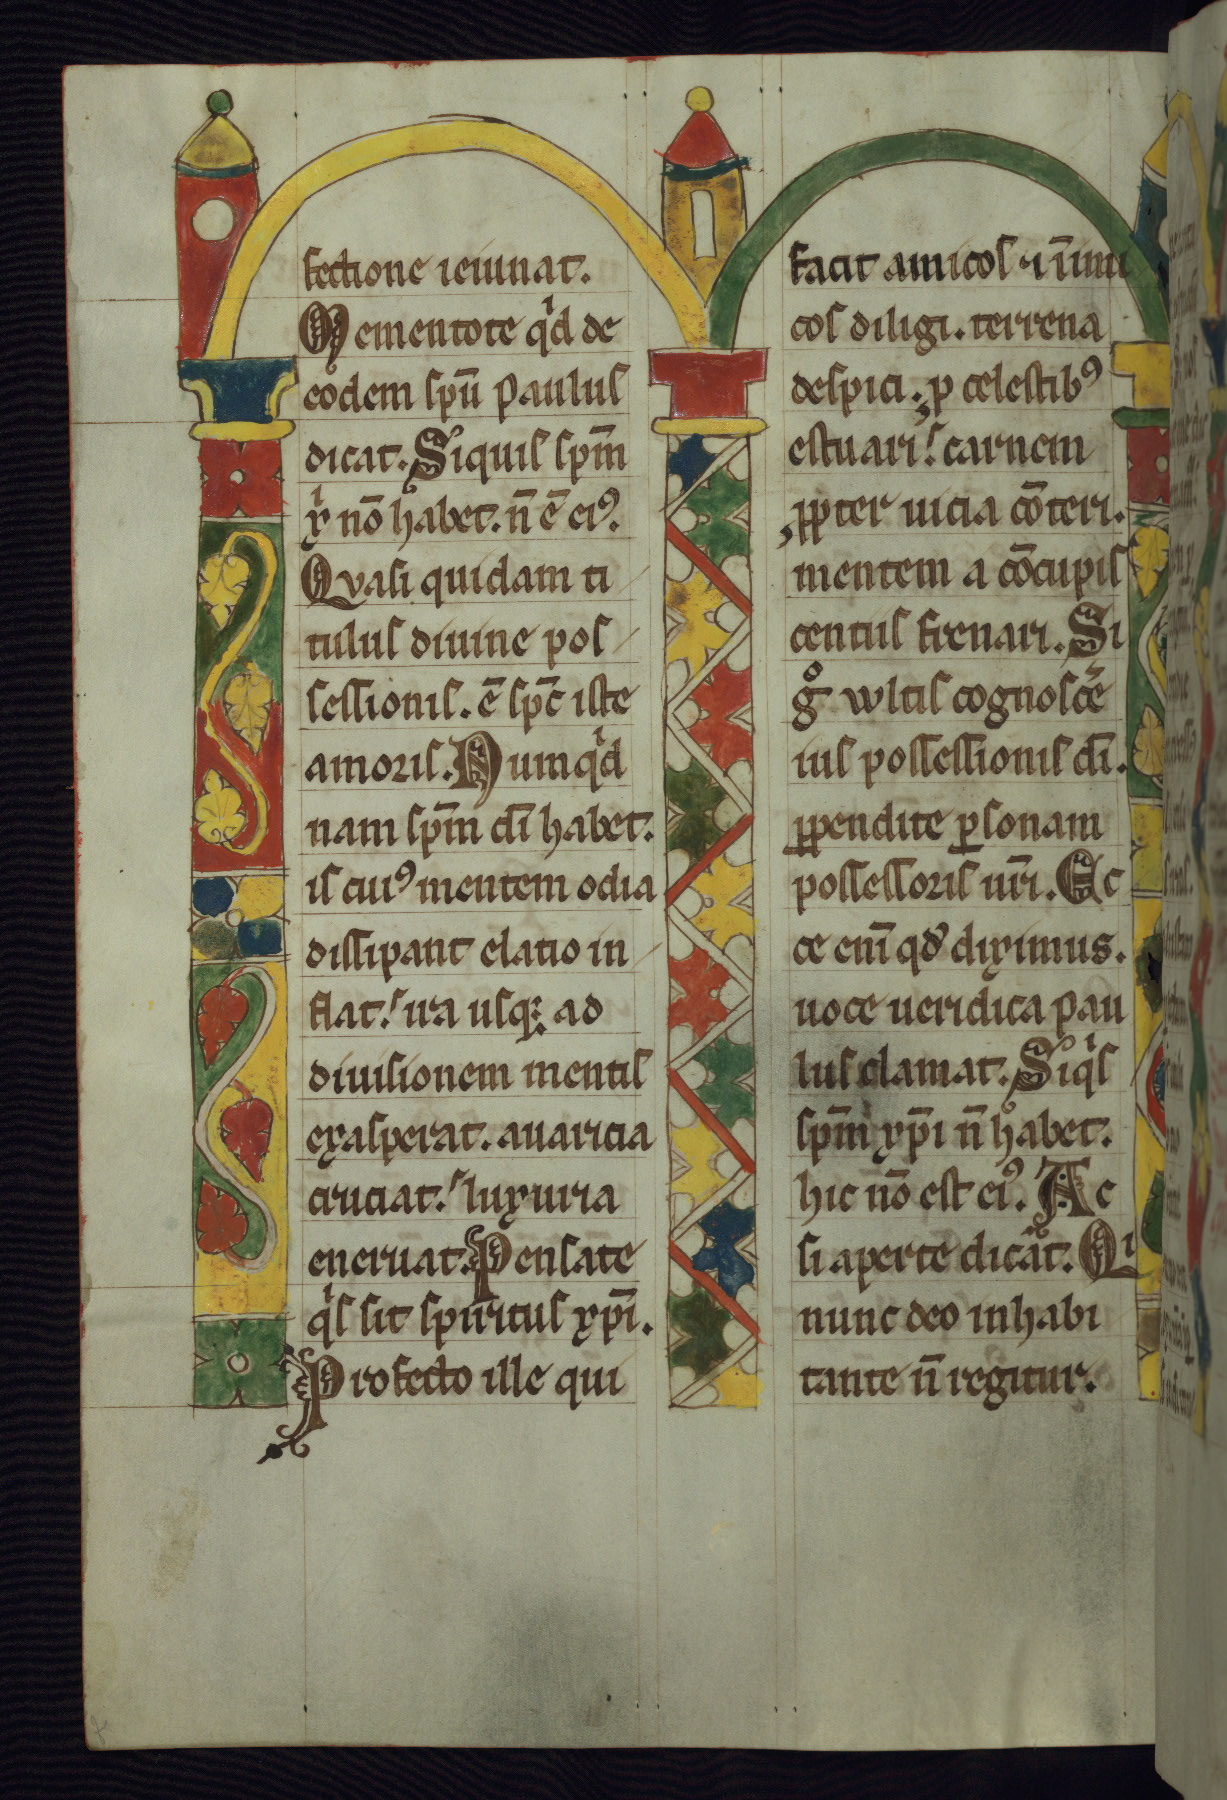 fectione ieiunat.
Mementote qͥd de
eodem spū paulus
dicat. Siquis spm̄
xͥ nō habet. n̄ ē eiꝰ.
Qvasi quidam ti
tulus diuine pos
sessionis. ē spc̄ iste
amoris. Numqͥd
nam spm̄ dī habet.
is cuiꝰ mentem odia
dissipant elatio in
flat. ira usqꝫ ad
diuisionem mentis
exasperat. auaricia
cruciat. luxuria
eneruat. Pensate
qͥs sit spiritus xp̄i.
Profecto ille qui
facit amicos ⁊ inimi
cos diligi. terrena
despici. p celestibꝰ
estuari. carnem
ꝓpter uicia cōteri.
mentem a cōcupis
centiis frenari. Si
gͦ wltis cognoscē
ius possessionis dī.
ꝑpendite ꝑsonam
possessoris ur̄i. Ec
ce eni̅ qđ diximus.
uoce ueridica pau
lus clamat. Siqͥs
spm̄ xp̄i n̄ habet.
hic nō est eiꝰ. Ac
si aperte dicat. Qi
nunc deo inhabi
tante n̄ regitur.